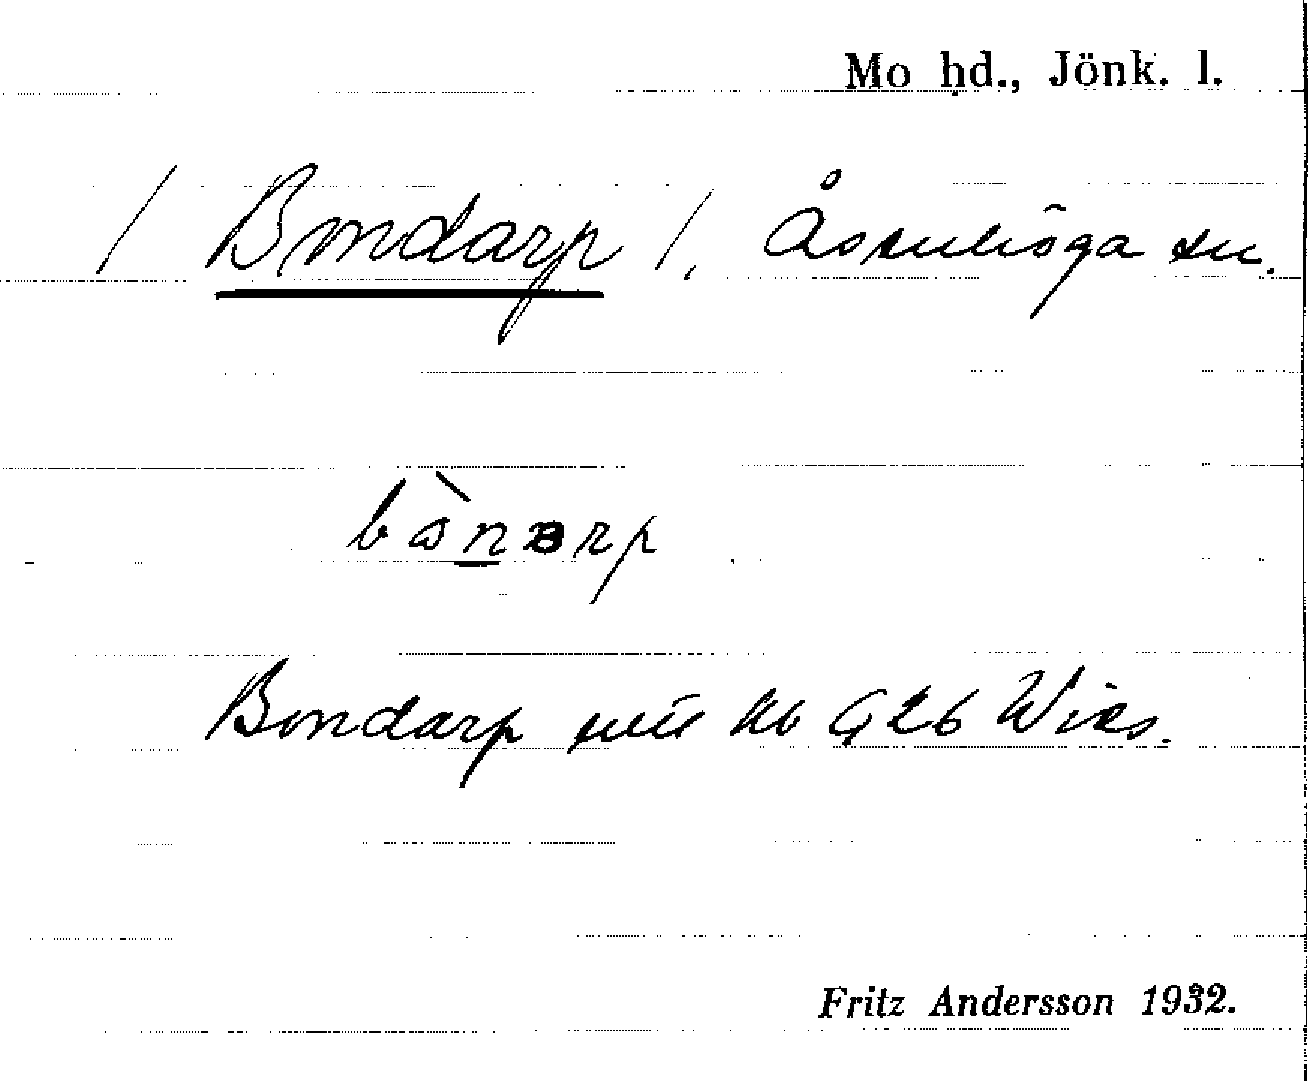 Mo hd., Jönk. l.
/ Bondarp /. Åsenhöga sn.
bònarp
Bondarp
Fritz Andersson 1932.